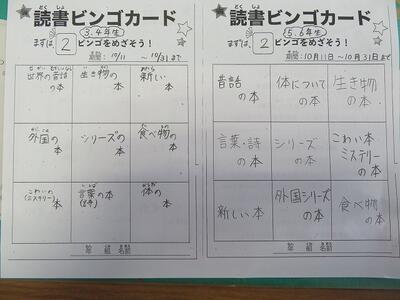 どく しょ
読書ビンゴカード
3.4年生
まずは 2 ビンゴをめざそう!
10/11 〜 10/31まで
世界の昔話の本
生き物の本
新しい本
外国の本
シリーズの本
食べ物の本
こわいの(ミステリー)本
言葉の本
(詩)
体の本
年 組 名前
どく しょ
読書ビンゴカード
5.6年生
まずは 2 ビンゴをめざそう!
10月11日〜10月31日まで
昔話の本
体についての本
生き物の本
言葉・詩の本
シリーズの本
こわい本
ミステリーの本
新しい本
外国シリーズの本
食べ物の本
年 組 名前